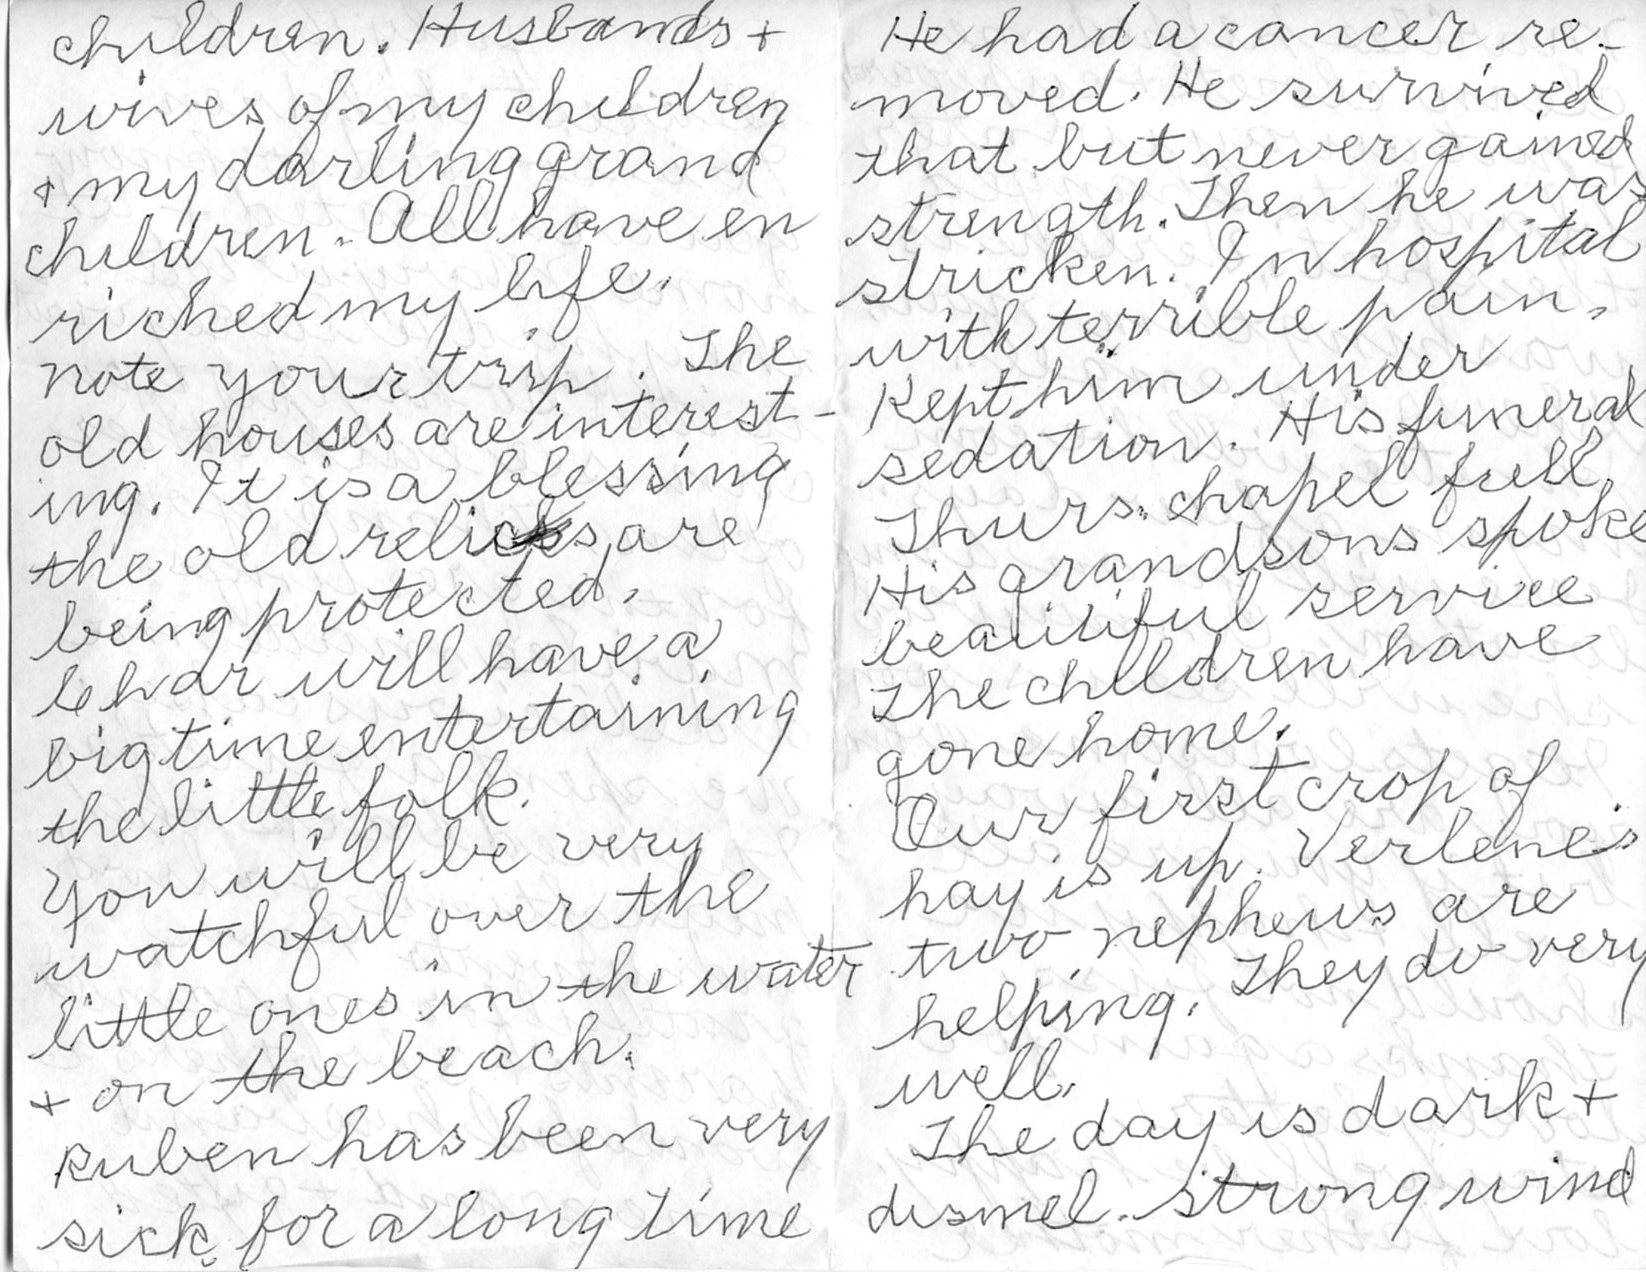 children. Husbands +
wives of my children
+ my darling grand
children. All have en
riched my life.
note your trip. The
old houses are interest-
ing. It is a blessing
the old relics are
being protected.
Lehar will have a
big time entertaining
the little folk.
You will be very
watchful over the
little ones in the water
+ on the beach.
Ruben has been very
sick for a long time
He had a cancer re-
moved. He survived
that but never gained
strength. Then he was
stricken. In hospital
with terrible pain,
Kept him under
sedation. His funeral
Thurs. chapel full,
His grandsons spoke
beautiful service
The children have
gone home.
Our first crop of
hay is up. Verlene's
two nephews are
helping. They do very
well.
The day is dark +
dismel. strong wind